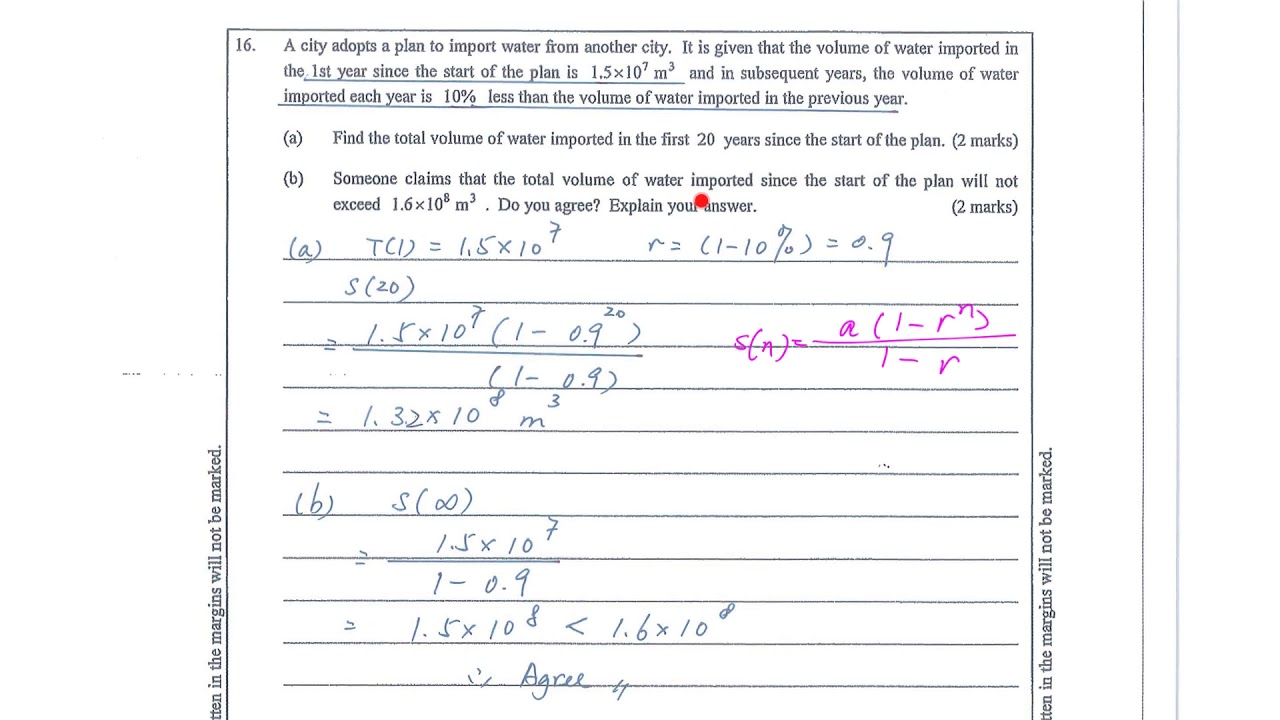 16. A city adopts a plan to import water from another city. It is given that the volume of water imported in
the 1st year since the start of the plan is 1.5×10⁷ m³ and in subsequent years, the volume of water
imported each year is 10% less than the volume of water imported in the previous year.
(a) Find the total volume of water imported in the first 20 years since the start of the plan. (2 marks)
(b) Someone claims that the total volume of water imported since the start of the plan will not
exceed 1.6×10⁸ m³ . Do you agree? Explain your answer. (2 marks)
(a) T(1) = 1.5×10⁷ r = (1-10%) = 0.9
S(20)
= 1.5×10⁷ (1- 0.9²⁰)
(1- 0.9)
S(n)= a(1-rⁿ)
1-r
= 1.32×10⁸ m³
(b) S(∞)
= 1.5×10⁷
1- 0.9
= 1.5×10⁸ < 1.6×10⁸
∴ Agree
tten in the margins will not be marked.
tten in the margins will not be marked.